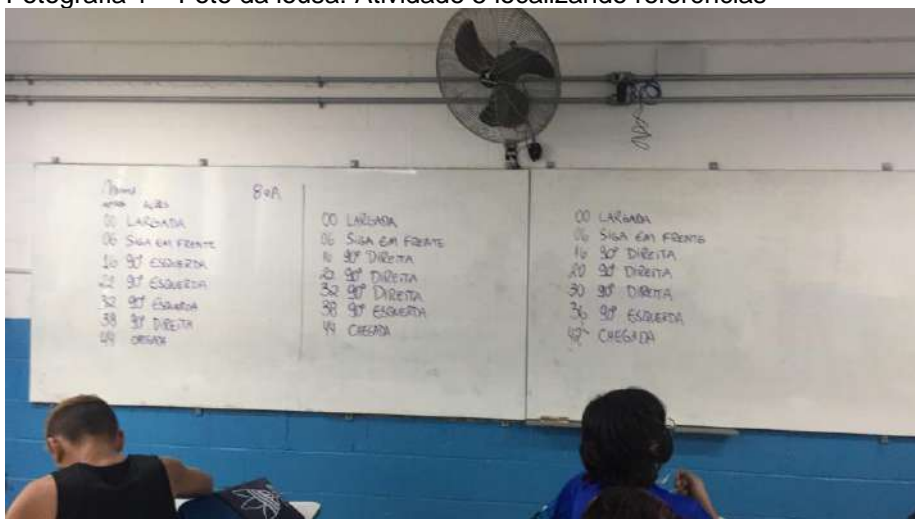 Fotografia 1 – Foto da lousa: Atividade 6 localizando referências
8ºA
AÇÕES
00 LARGADA
06 SIGA EM FRENTE
16 90º ESQUERDA
22 90º ESQUERDA
32 90º ESQUERDA
38 90º DIREITA
44 CHEGADA
00 LARGADA
06 SIGA EM FRENTE
16 90º DIREITA
22 90º DIREITA
32 90º DIREITA
38 90º ESQUERDA
44 CHEGADA
00 LARGADA
06 SIGA EM FRENTE
16 90º DIREITA
20 90º DIREITA
30 90º DIREITA
36 90º ESQUERDA
42 CHEGADA